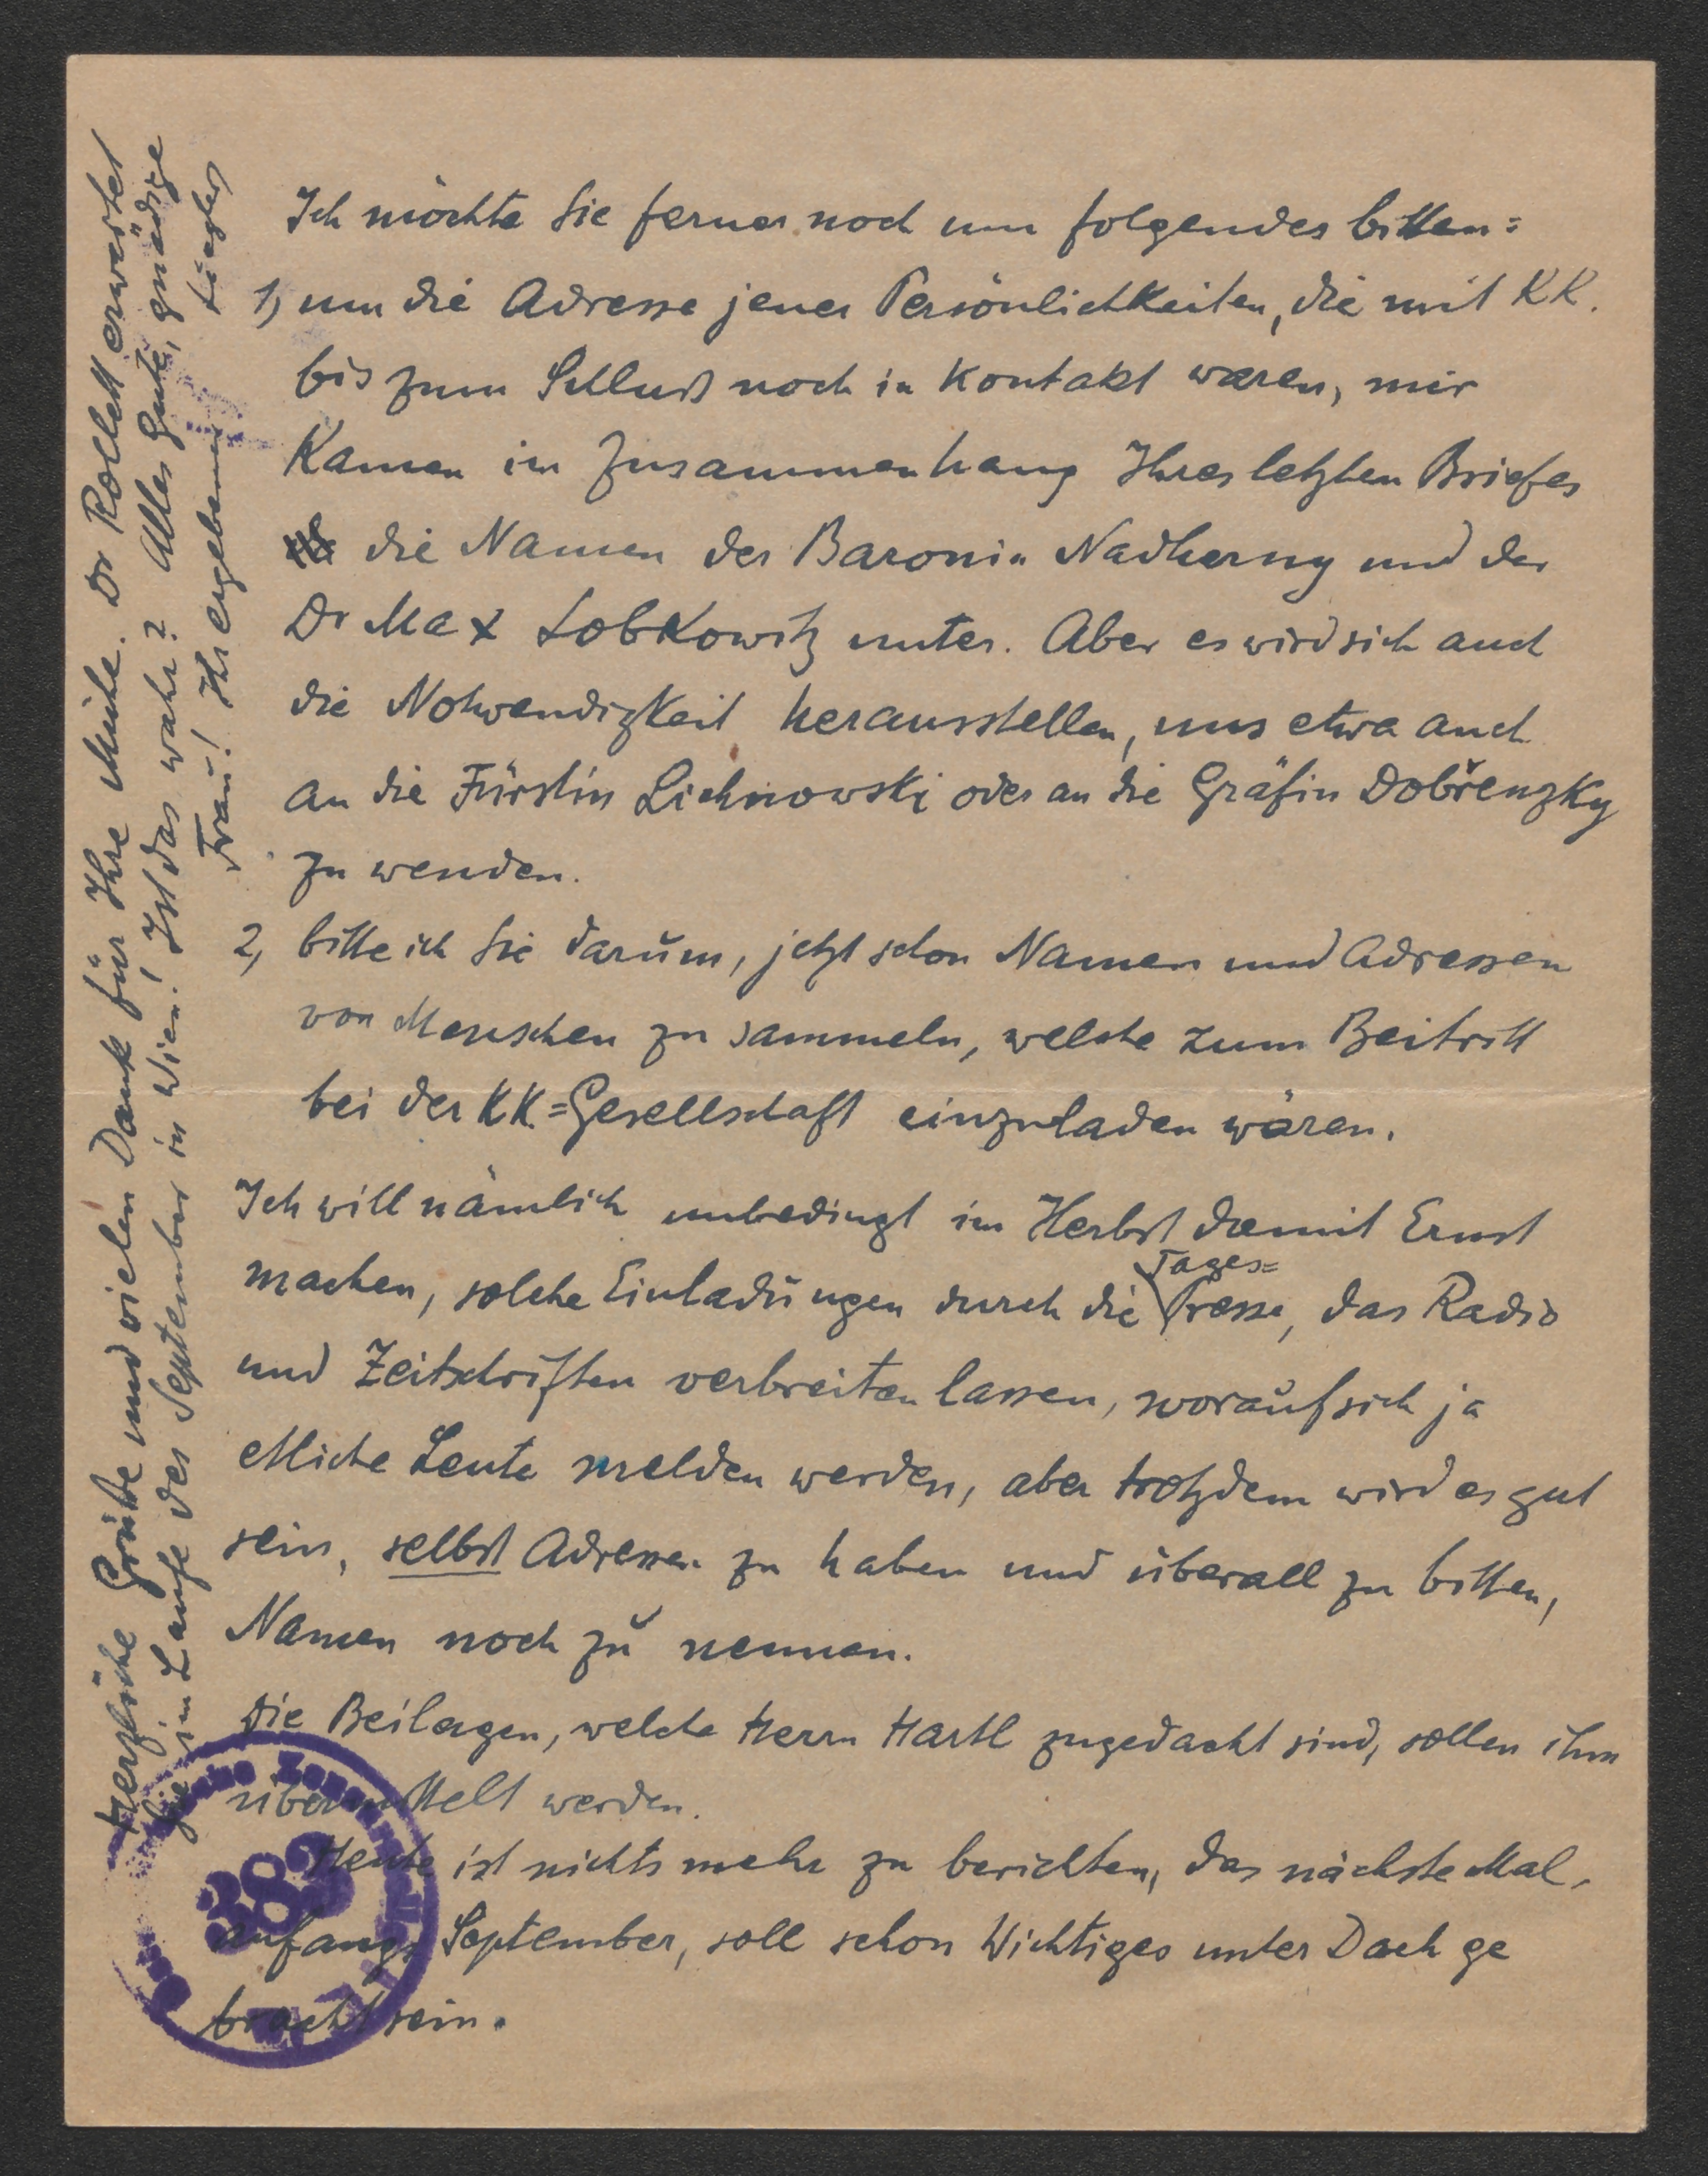 Ich möchte Sie ferner noch um folgendes bitten:
1, um die Adresse jener Persönlichkeiten, die mit KK.
bis zum Schluß noch in Kontakt waren, mir
kamen im Zusammenhang Ihres letzten Briefes
die Namen der Baronin Nadherny und des
Dr Max Lobkowitz unter. Aber es wird sich auch
die Notwendigkeit herausstellen, uns etwa auch
an die Fürstin Lichnowski oder an die Gräfin Dobřenzky
zu wenden.
2, bitte ich Sie darum, jetzt schon Namen und Adressen
von Menschen zu sammeln, welche zum Beitritt
bei der KK.=Gesellschaft einzuladen wären.
Ich will nämlich unbedingt im Herbst damit Ernst
machen, solche Einladungen durch die Tages=Presse, das Radio
und Zeitschriften verbreiten lassen, worauf sich ja
etliche Leute melden werden, aber trotzdem wird es gut
sein, selbst Adressen zu haben und überall zu bitten,
Namen noch zu nennen.
Die Beilagen, welche Herrn Hartl zugedacht sind, sollen ihm
übermittelt werden.
Heute ist nichts mehr zu berichten, das nächste Mal,
anfangs September, soll schon Wichtiges unter Dach ge
bracht sein.
Herzliche Grüße und vielen Dank für Ihre Mühe. Dr Rollett erwartet
Sie im Laufe des September in Wien! Ist das wahr? Alles Gute, gnädige
Frau! Ihr ergebener
389